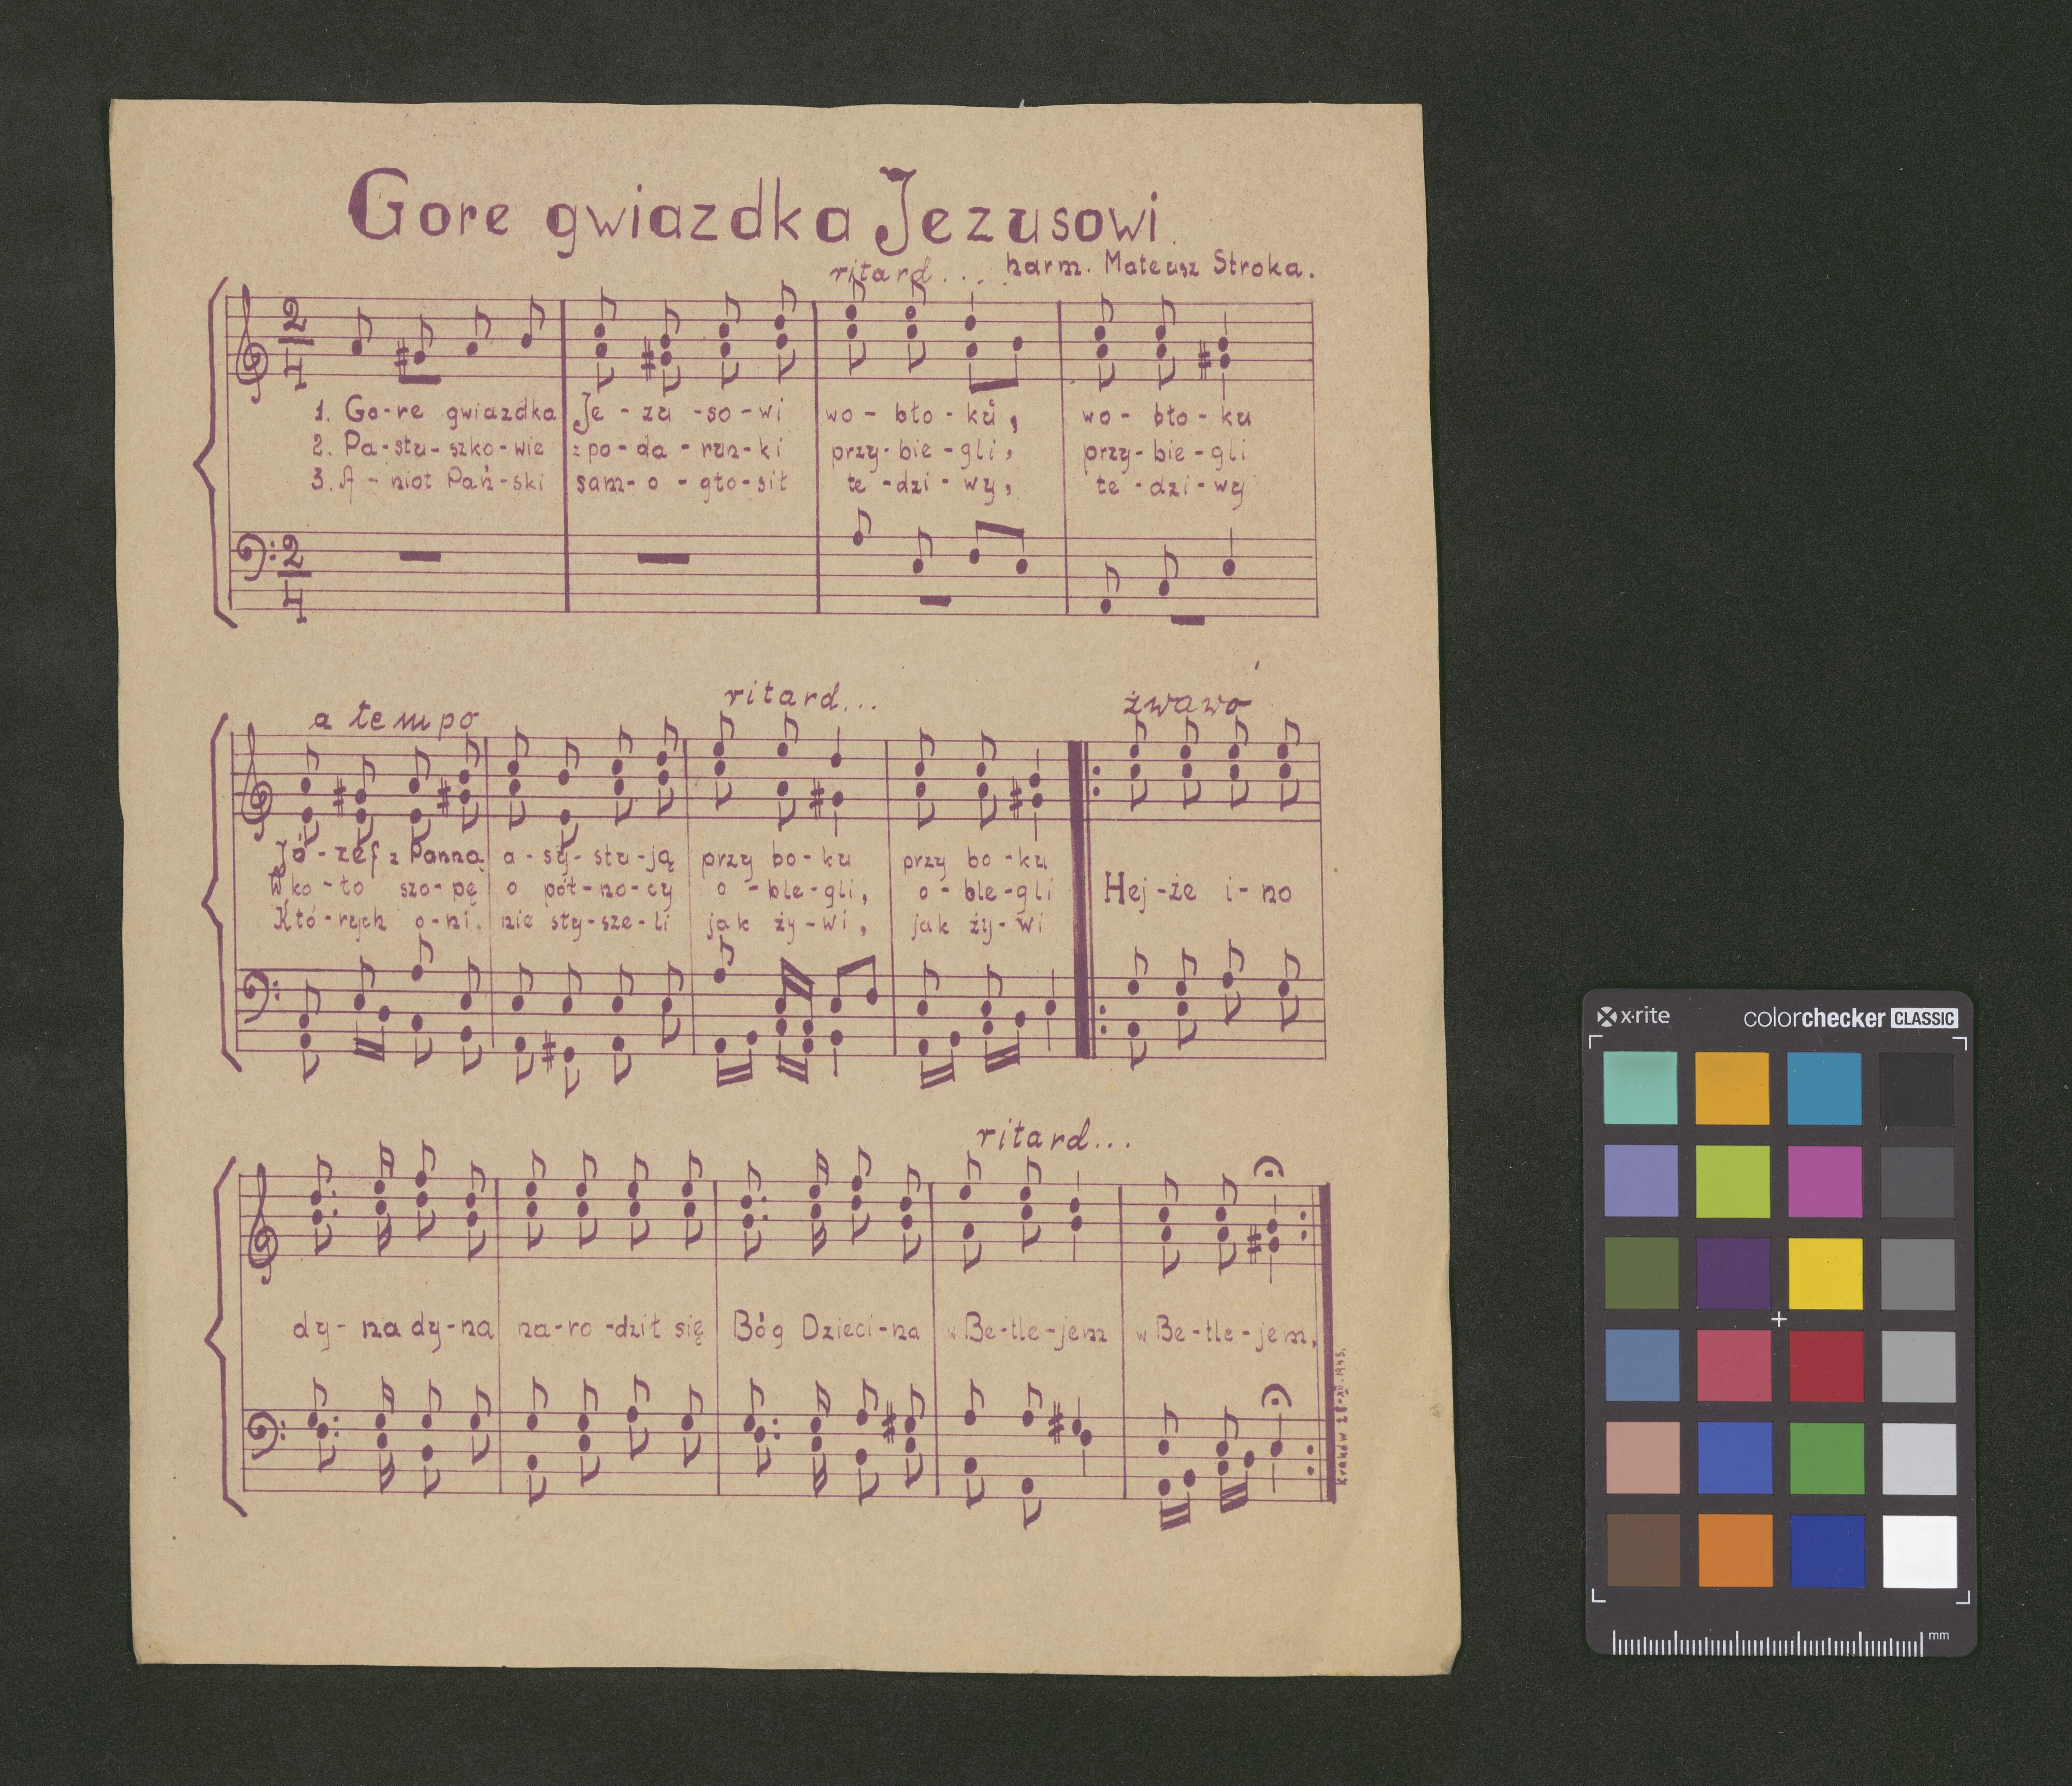 Gore gwiazdka Jezusowi.
harm. Mateusz Stroka.
ritard...
2
4
1. Go-re gwiazdka Je-zu-so-wi wo-bło-ku, wo-bło-ku
2. Pa-stu-szko-wie z po-da-run-ki przy-bie-gli, przy-bie-gli
3. A-nioł Pań-ski sam-o-gło-sił te-dzi-wy, te-dzi-wy
2
4
a tempo ritard... żwawo
Jó-zef z Panną a-sy-stu-ją przy bo-ku przy bo-ku
Wko-ło szo-pę o pół-no-cy o-ble-gli, o-ble-gli Hej-że i-no
Któ-rych o-ni. nie sły-sze-li jak ży-wi, jak ży-wi
ritard...
dy-na dy-na na-ro-dził się Bóg Dzieci-na w Be-tle-jem w Be-tle-jem.
Kraków 28-XII-1943.
x-rite colorchecker CLASSIC
mm